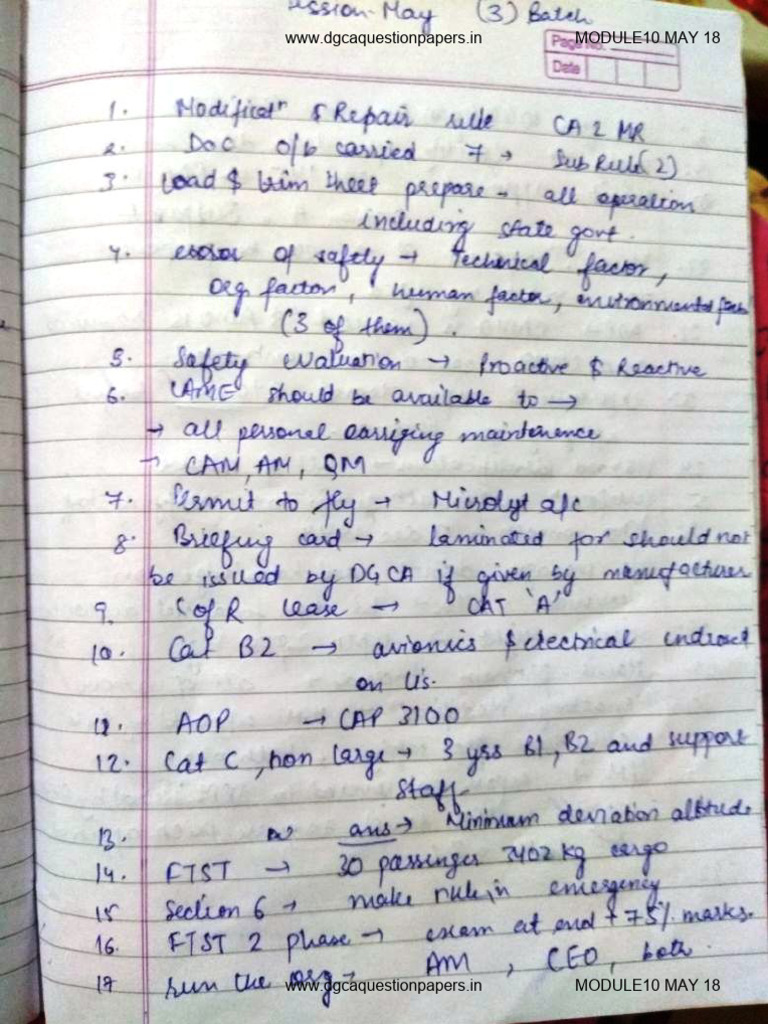 ession-May (3) Batch
www.dgcaquestionpapers.in MODULE10 MAY 18
Page No.
Date
1. Modificatn & Repair rule CA 2 MR
2. Doc o/b carried 7 → Sub Rule(2)
3. Load & trim sheet prepare → all operation
including state govt.
4. of safety → Technical factor,
Org. factor, human factor, environmental
(3 of them).
5. Safety evaluation → Proactive & Reactive
6. LAME should be available to →
→ all personal carrying maintenence
→ CAM, AM, QM
7. Permit to fly → Microlyt a/c
8. Briefing card → laminated for should not
be issued by DGCA if given by manufacturer
9. C of R lease → CAT 'A'
10. Cat B2 → avionics & electrical
on
11. AOP → CAP 3100
12. Cat C, non large → 3 yrs B1, B2 and support
Staff
13. ans → Minimum deviation altitude
14. FTST → 30 passenger 3402 kg cargo
15 Section 6 → make rule in emergency
16. FTST 2 phase → exam at end + 75% marks.
17 run the org → AM, CEO, both.
www.dgcaquestionpapers.in MODULE10 MAY 18